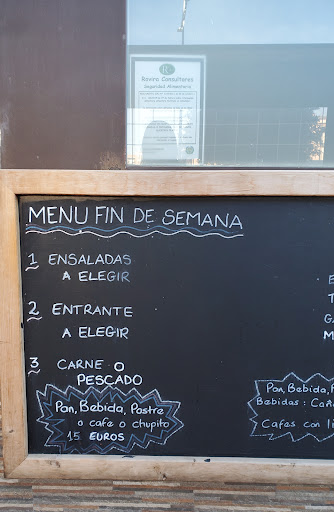 Rovira Consultores
Seguridad Alimentaria
MENU FIN DE SEMANA
1 ENSALADAS
A ELEGIR
2 ENTRANTE
A ELEGIR
3 CARNE O
PESCADO
Pan, Bebida, Postre
o cafe o chupito
15 EUROS
Pan, Bebida, P
Bebidas: CaÑ
Cafas con li